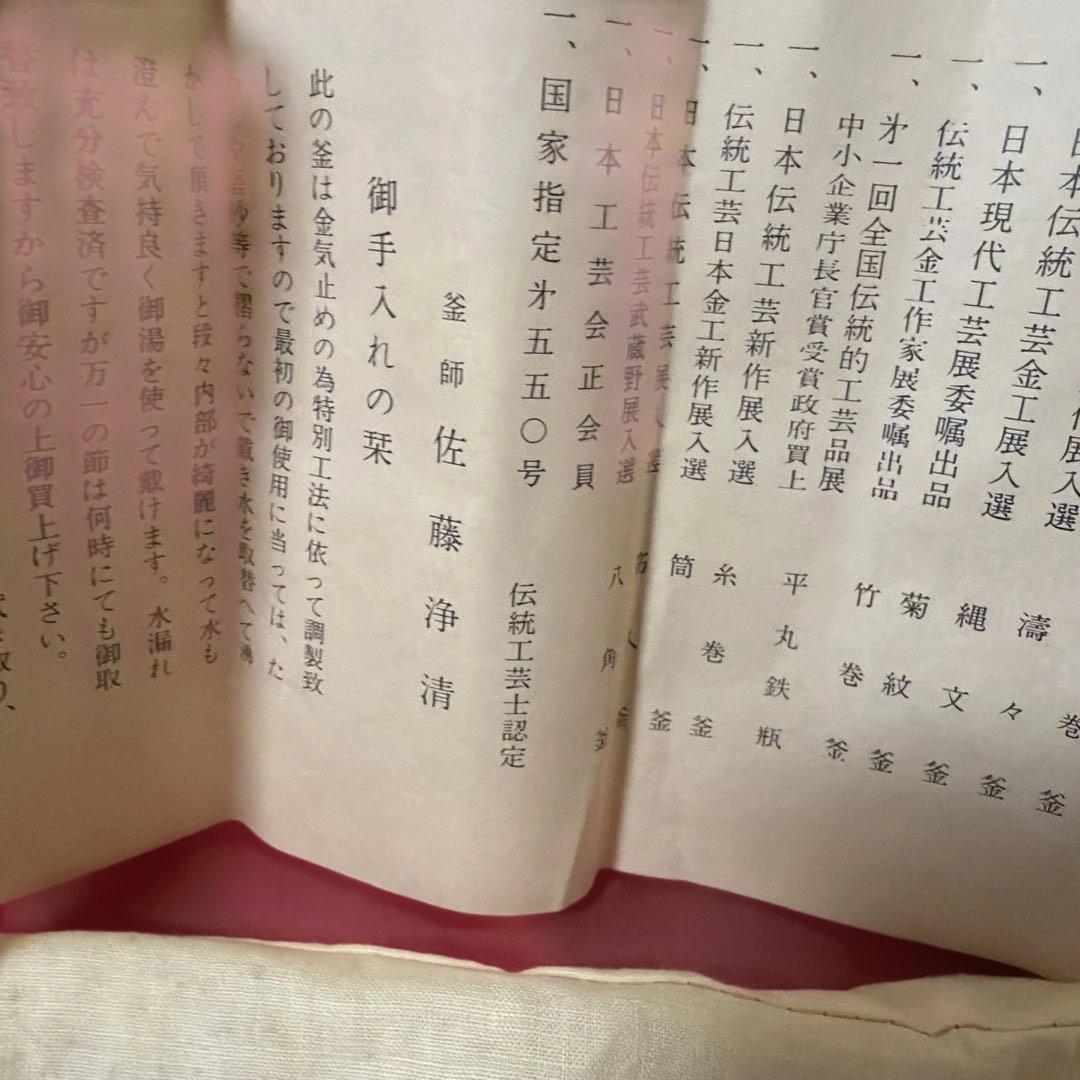 日本伝統工芸金工展入選
一、日本現代工芸展委嘱出品 濤々釜
一、伝統工芸金工作家展委嘱出品 縄文釜
一、才一回全国伝統的工芸品展 菊紋釜
中小企業庁長官賞受賞政府買上 竹巻釜
一、日本伝統工芸新作展入選 平丸鉄瓶
一、伝統工芸日本金工新作展入選 糸巻釜
一、日本伝統工芸展入選 筒釜
一、日本伝統工芸武蔵野展入選
一、日本工芸会正会員 八角釜
一、国家指定才五五〇号 伝統工芸士認定
釜師 佐藤浄清
御手入れの栞
此の釜は金気止めの為特別工法に依って調製致
しておりますので最初の御使用に当っては、た
等で摺らないで戴き水を取替へて沸
かして頂きますと段々内部が綺麗になって水も
澄んで気持良く御湯を使って戴けます。水漏れ
は充分検査済ですが万一の節は何時にても御取
替致しますから御安心の上御買上げ下さい。